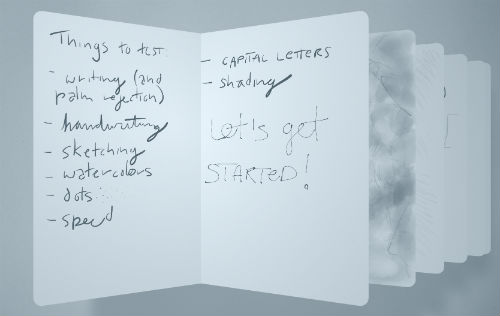 Things to test:
- writing (and
palm rejection)
- handwriting
- sketching
- watercolours
- dots
- speed
- CAPITAL LETTERS
- shading
Let's get
STARTED!